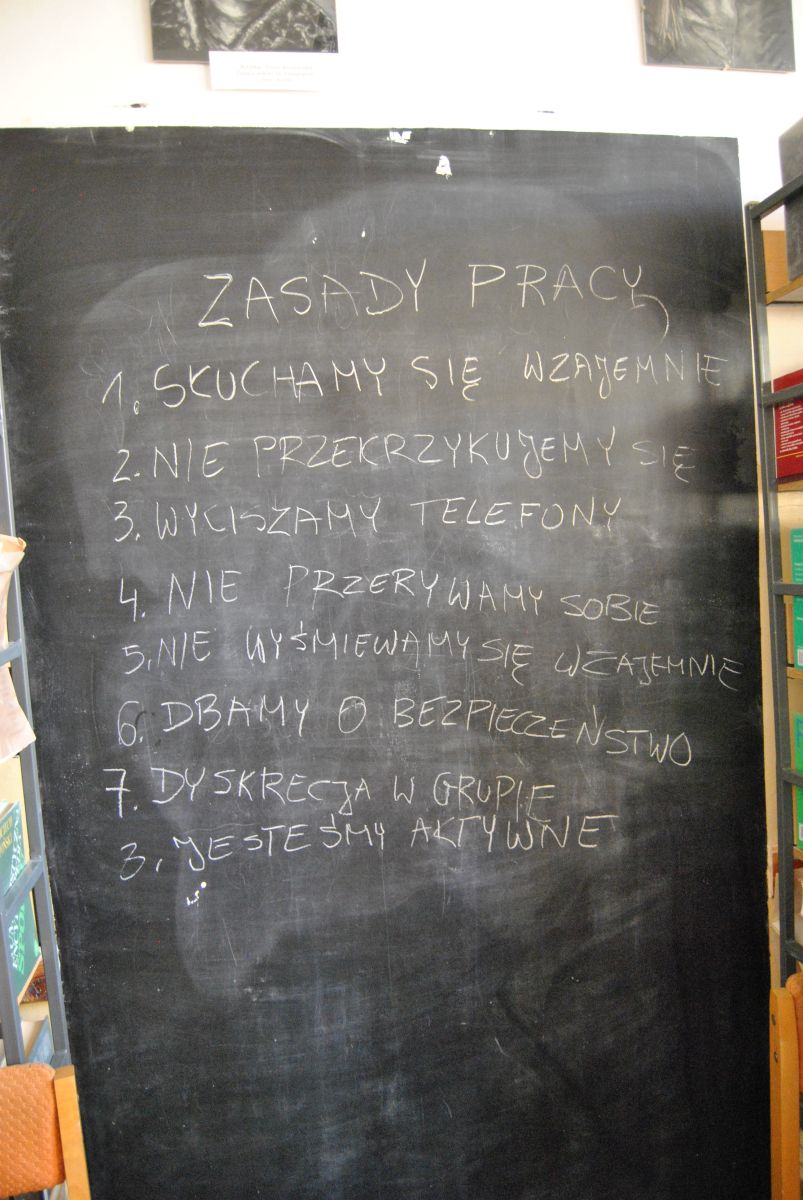 ZASADY PRACY
1. SŁUCHAMY SIĘ WZAJEMNIE
2. NIE PRZEKRZYKUJEMY SIĘ
3. WYCISZAMY TELEFONY
4. NIE PRZERYWAMY SOBIE
5. NIE WYŚMIEWAMY SIĘ WZAJEMNIE
6. DBAMY O BEZPIECZEŃSTWO
7. DYSKRECJA W GRUPIE
8. JESTEŚMY AKTYWNE